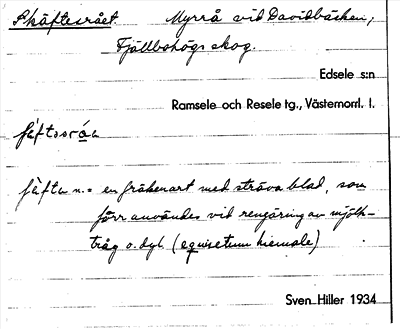 Skäftesrået. Myrrå vid Davidbäcken,
Fjällbohögs skog.
Edsele s:n
Ramsele och Resele tg., Västernorrl. l.
fä̀ftəsrɷ́a
fä̀ftu n. = en fräkenart med sträva blad, som
förr användes vid rengöring av mjölk-
tråg o.dyl. (equisetum hiemale)
Sven Hiller 1934